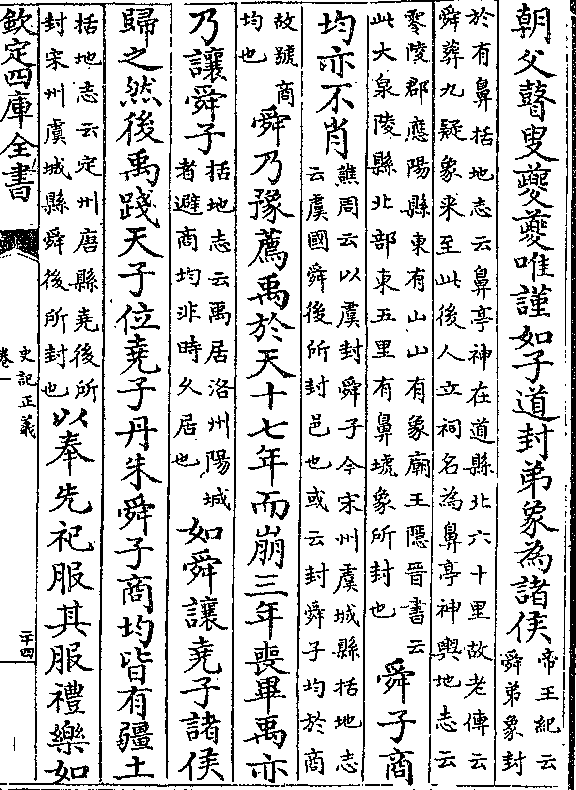 朝父瞽叟夔夔唯謹如子道封弟象為諸侯帝王紀云舜弟象封
於有鼻括地志云鼻亭神在道縣北六十里故老傳云
舜葬九疑象来至此後人立祠名為鼻亭神輿地志云
零陵郡應陽縣東有山山有象廟王隱晉書云
此大泉陵縣北部東五里有鼻墟象所封也舜子商
均亦不肖譙周云以虞封舜子今宋州虞城縣括地志
云虞國舜後所封邑也或云封舜子均於商
故號商
均也舜乃豫薦禹於天十七年而崩三年喪畢禹亦
乃讓舜子括地志云禹居洛州陽城
者避商均非時久居也如舜讓堯子諸侯
歸之然後禹踐天子位堯子丹朱舜子商均皆有疆土
括地志云定州唐縣堯後所
封宋州虞城縣舜後所封也以奉先祀服其服禮樂如
欽定四庫全書
史記正義
卷一
二十四